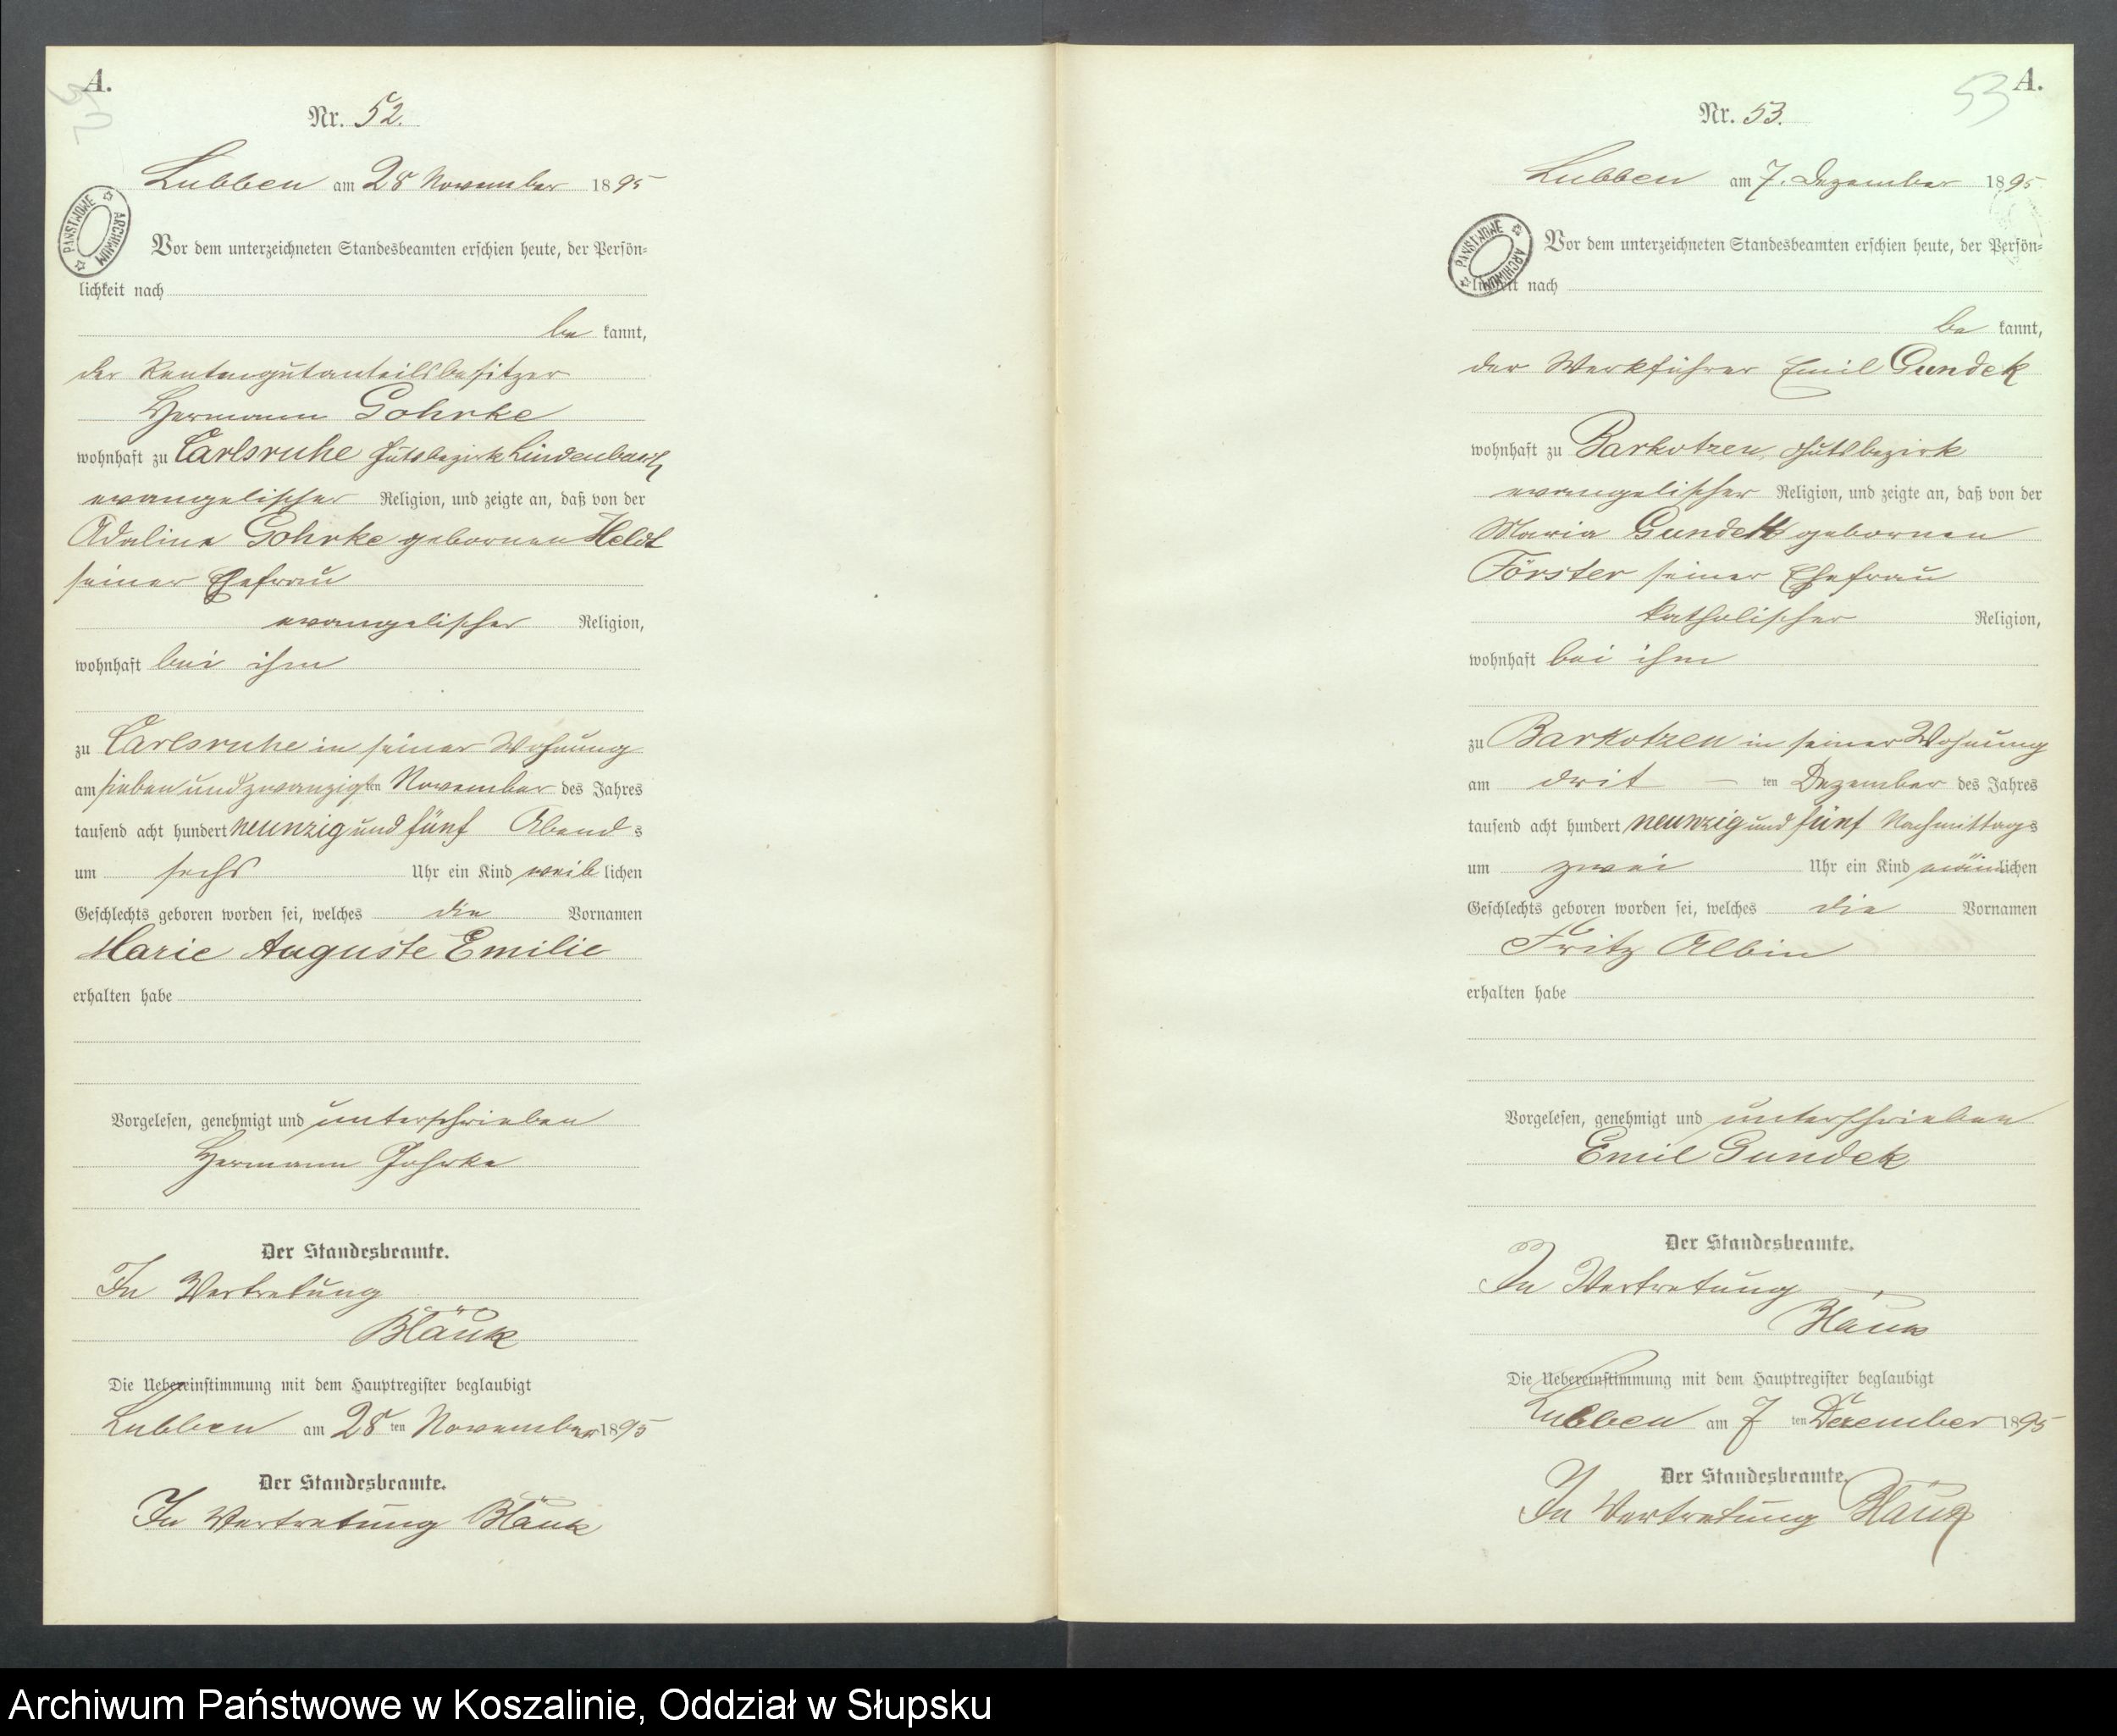 A.
52
Nr. 52.
Lubben am 28 November 1895
PAŃSTWOWE ARCHIWUM
Vor dem unterzeichneten Standesbeamten erschien heute, der Persön-
lichkeit nach
be kannt,
der Rentengutantheilsbesitzer
Hermann Gohrke
wohnhaft zu Carlsruhe Gutsbezirk Lindenbusch
evangelischer Religion, und zeigte an, daß von der
Adeline Gohrke gebornen Heldt
seiner Ehefrau
evangelischer Religion,
wohnhaft bei ihm
zu Carlsruhe in seiner Wohnung
am sieben und zwanzigten November des Jahres
tausend acht hundert neunzig und fünf Abends
um sechs Uhr ein Kind weiblichen
Geschlechts geboren worden sei, welches die Vornamen
Marie Auguste Emilie
erhalten habe
Vorgelesen, genehmigt und unterschrieben
Hermann Gohrke
Der Standesbeamte.
In Vertretung
Bläuk
Die Uebereinstimmung mit dem Hauptregister beglaubigt
Lubben am 28 ten November 1895
Der Standesbeamte.
In Vertretung Bläuk
53
A.
Nr. 53.
Lubben am 7. Dezember 1895
PAŃSTWOWE ARCHIWUM
Vor dem unterzeichneten Standesbeamten erschien heute, der Persön-
lichkeit nach
be kannt,
der Werkführer Emil Gundek
wohnhaft zu Barkotzen, Gutsbezirk
evangelischer Religion, und zeigte an, daß von der
Maria Gundek gebornen
Förster seiner Ehefrau
katholischer Religion,
wohnhaft bei ihm
zu Barkotzen in seiner Wohnung
am drit — ten Dezember des Jahres
tausend acht hundert neunzig und fünf Nachmittags
um zwei Uhr ein Kind männlichen
Geschlechts geboren worden sei, welches die Vornamen
Fritz Albin
erhalten habe
Vorgelesen, genehmigt und unterschrieben
Emil Gundek
Der Standesbeamte.
In Vertretung
Bläuk
Die Uebereinstimmung mit dem Hauptregister beglaubigt
Lubben am 7 ten Dezember 1895
Der Standesbeamte.
In Vertretung Bläuk
Archiwum Państwowe w Koszalinie, Oddział w Słupsku